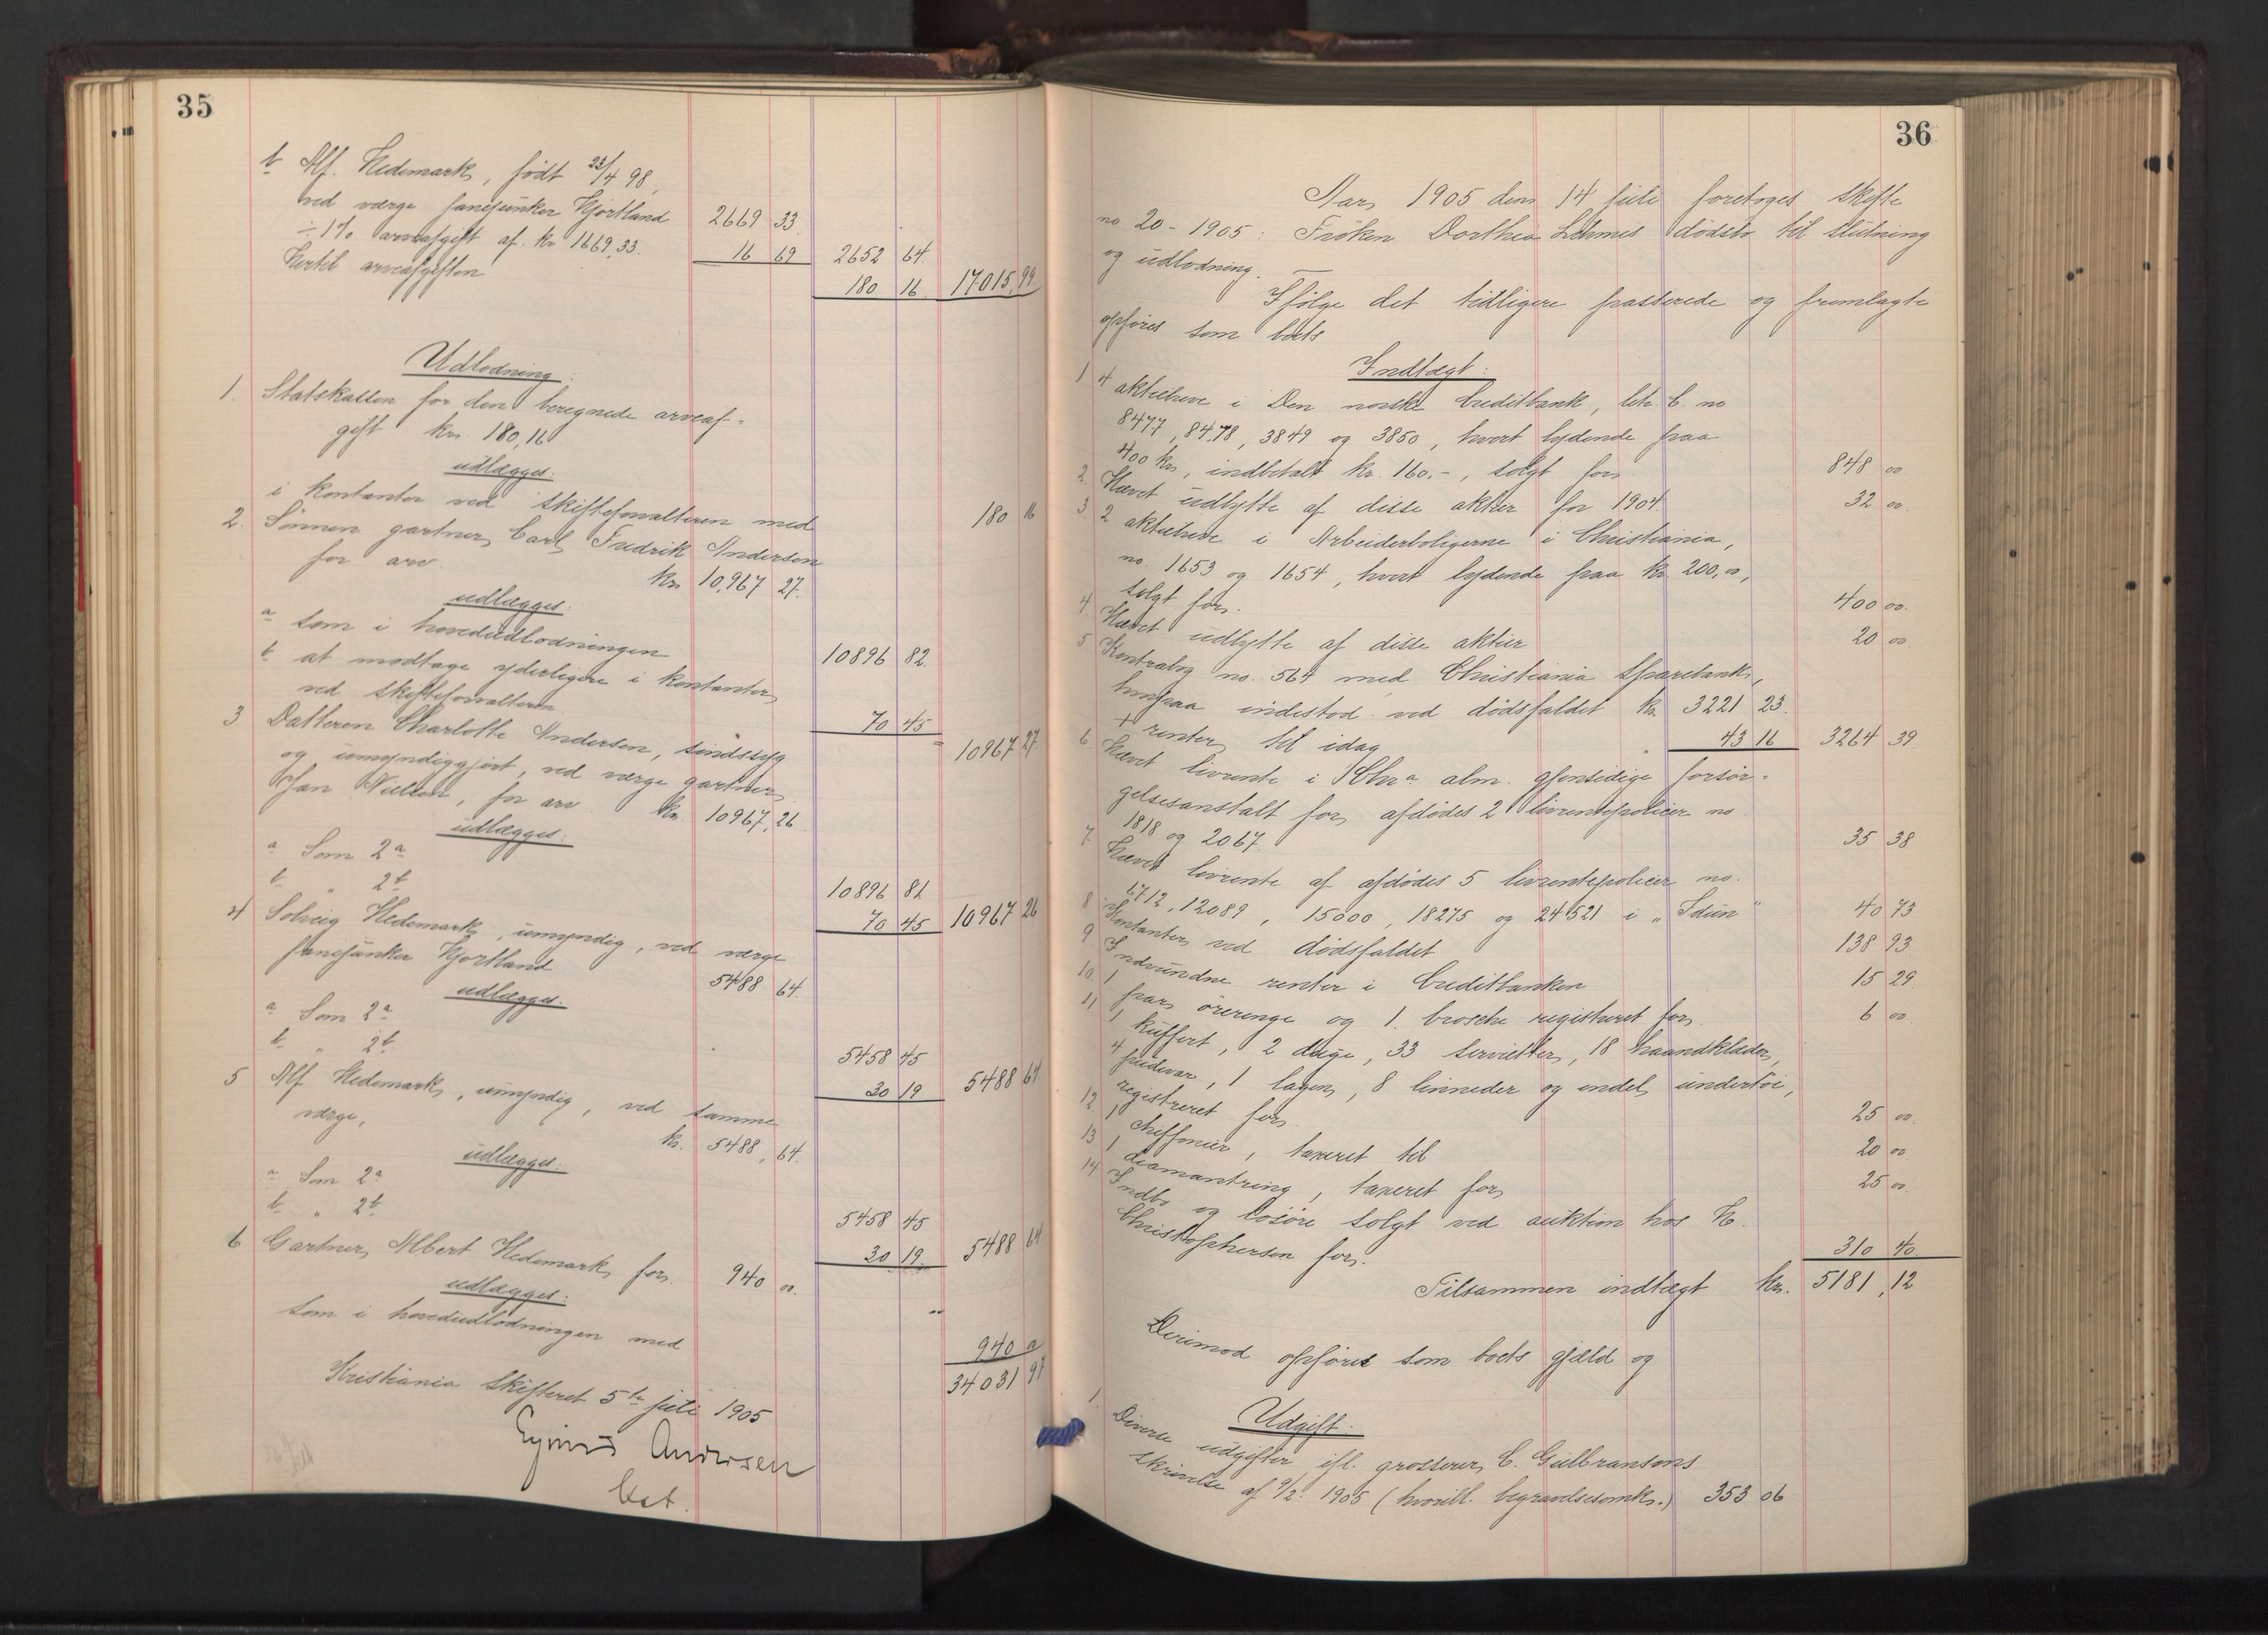 35
b Alf. Hedemark, født 23/4 98,
ved værge fanejunker Hjortland 2669 33.
÷ 1% arveafgift af kr 1669,33. 16 69 2652 64.
Hertil arveafgiften 180 16. 17015,99
Udlodning:
1. Statskassen for den beregnede arveaf-
gift kr. 180,16
udlægges:
i kontanter ved skifteforvalteren med 180 16
2. Sønnen gartner Carl Fredrik Andersen
for arv kr 10,967 27.
udlægges:
a som i hovedudlodningen 10896 82.
b at modtage yderligere i kontanter
ved skifteforvalteren 70 45 10967 27
3 Datteren Charlotte Andersen, sindssyg
og umyndiggjort, ved værge gartner
Jan Nielsen, for arv kr. 10967,26
udlægges:
a Som 2a 10896 81
b " 2b 70 45 10967 26
4 Solveig Hedemark, umyndig, ved værge
fanejunker Hjortland 5488 64.
udlægges:
a Som 2a 5458 45
b " 2b 30 19 5488 64.
5 Alf Hedemark, umyndig, ved samme
værge, kr. 5488,64.
udlægges:
a Som 2a 5458 45
b " 2b 30 19. 5488 64
6 Gartner Albert Hedemark for 940 00.
udlægges:
som i hovedudlodningen med 940 00
34031 97
Kristiania skifteret 5te juli 1905
Andersen
kst.
36
Aar 1905 den 14 juli foretoges skifte
no 20 - 1905: Frøken Dorthea Lehmes dødsbo til slutning
og udlodning.
Ifølge det tidligere passerede og fremlagte
opføres som boets
Indtægt:
1 4 aktiebreve i Den norske Creditbank, litr. C. no
8477, 8478, 3849 og 3850, hvert lydende paa
400 kr, indbetalt kr. 160.-, solgt for 848 00.
2. Hævet udbytte af disse aktier for 1904. 32 00.
3. 2 aktiebreve i Arbeiderboligerne i Christiania,
no. 1653 og 1654, hvert lydende paa kr 200,00,
solgt for. 400 00.
4. Hævet udbytte af disse aktier 20 00
5 Kontrabog no. 564 med Christiania Sparebank,
hvorpaa indestod ved dødsfaldet kr. 3221 23.
+ renter til idag 43 16 3264 39
6. Hævet livrente i Chra alm. gjensidige forsør-
gelsesanstalt for afdødes 2 livrentepolicer no
1818 og 2067. 35 38
7. Hævet livrente af afdødes 5 livrentepolicer no.
6712, 12089, 15000, 18275 og 24521 i "Idun" 40 73
8. Kontanter ved dødsfaldet 138 93
9 Indvundne renter i Creditbanken 15 29
10. 1 par ørerenge og 1. brosche registreret for 6 00
11 1 kuffert, 2 duge, 33 servietter, 18 haandklæder,
4 pudevar, 1 lagen, 8 linneder og endel undertøi,
registreret for 25 00.
12 1 chiffonier, taxeret til 20 00
13 1 diamantring, taxeret for 25 00.
14 Indbo og løsøre solgt ved auktion hos H.
Christophersen for. 310 40.
Tilsammen indtægt kr. 5181,12
Derimod opføres som boets gjæld og
Udgift:
1. Diverse udgifter ifl. grosserer C. Gulbransons
skrivelse af 9/2. 1905 (hvoribl. begravelsesomk.) 353 06